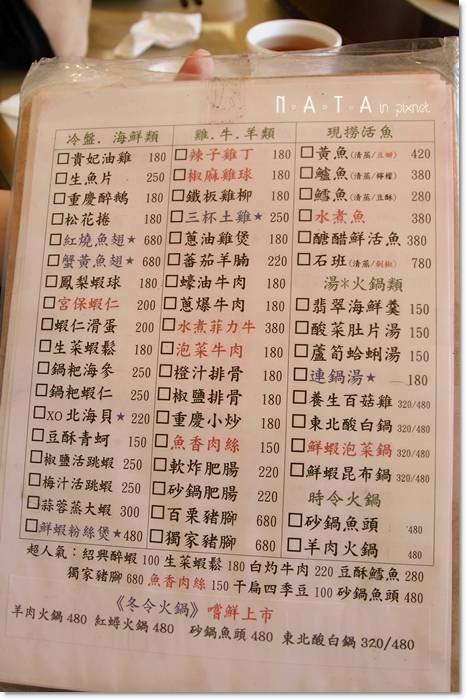 N.A.T.A in pixnet
冷盤.海鮮類
□貴妃油雞 180
□生魚片 250
□重慶醉鵝 180
□松花捲 180
□紅燒魚翅★ 680
□蟹黃魚翅★ 680
□鳳梨蝦球 180
□宮保蝦仁 200
□蝦仁滑蛋 200
□生菜蝦鬆 180
□鍋粑海參 250
□鍋粑蝦仁 250
□XO北海貝★ 220
□豆酥青蚵 150
□椒鹽活跳蝦 250
□梅汁活跳蝦 250
□蒜蓉蒸大蝦 300
□鮮蝦粉絲煲★480
雞.牛.羊類
□辣子雞丁 180
□椒麻雞球 180
□鐵板雞柳 180
□三杯土雞★ 250
□蔥油雞煲 180
□蕃茄羊腩 220
□蠔油牛肉 180
□蔥爆牛肉 180
□水煮菲力牛 380
□泡菜牛肉 180
□橙汁排骨 180
□椒鹽排骨 180
□重慶小炒 180
□魚香肉絲 150
□軟炸肥腸 220
□砂鍋肥腸 220
□百栗豬腳 680
□獨家豬腳 680
現撈活魚
□黃魚(清蒸/豆瓣) 420
□鱸魚(清蒸/檸檬) 380
□鱈魚(清蒸/豆酥) 280
□水煮魚 380
□醣醋鮮活魚 380
□石班(清蒸/剁椒) 780
湯*火鍋類
□翡翠海鮮羹 150
□酸菜肚片湯 150
□蘆筍蛤蜊湯 150
□連鍋湯★ 180
□養生百菇雞 320/480
□東北酸白鍋 320/480
□鮮蝦泡菜鍋 320/480
□鮮蝦昆布鍋 320/480
時令火鍋
□砂鍋魚頭 480
□羊肉火鍋 480
超人氣：紹興醉蝦 100 生菜蝦鬆 180 白灼牛肉 220 豆酥鱈魚 280
獨家豬腳 680 魚香肉絲 150 干扁四季豆 100 砂鍋魚頭 480
《冬令火鍋》嚐鮮上市
羊肉火鍋 480 紅蟳火鍋 480 砂鍋魚頭 480 東北酸白鍋 320/480